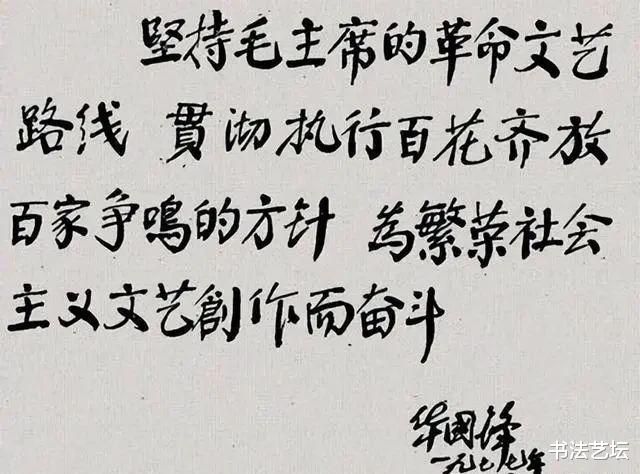 坚持毛主席的革命文艺
路线 貫沏执行百花齐放
百家争鳴的方针 為繁荣社会
主义文艺創作而奋斗
华國锋
一九七七年
书法艺坛